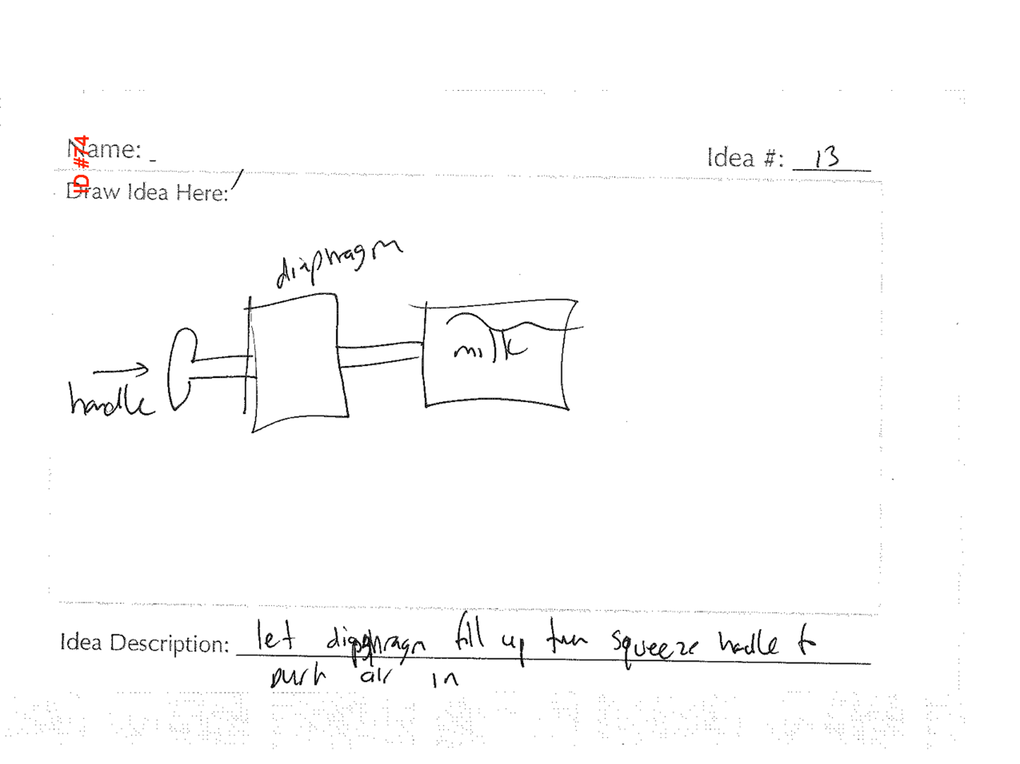 Name: -
ID #74
Idea #: 13
Draw Idea Here:
diaphragm
handle
milk
Idea Description: let diaphragm fill up then squeeze handle to
push air in